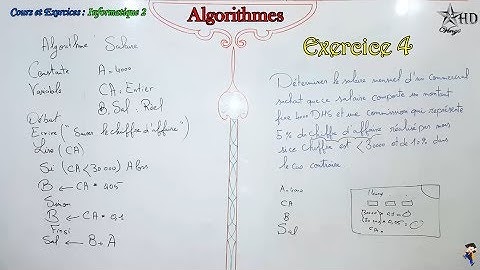 Cours et Exercices : Informatique 2
Algorithmes
HD
Exercice 4
Algorithme Salaire
Constante A = 4000
Variable CA : Entier
B, Sal : Réel
Début
Ecrire ("Saisir le chiffre d'affaire")
Lire (CA)
Si (CA < 30000) Alors
B ← CA * 0.05
Sinon
B ← CA * 0.1
Finsi
Sal ← B + A
Déterminer le salaire mensuel d'un commercial
sachant que ce salaire comporte un montant
fixe 4000 DHS et une commission qui représente
5% de chiffre d'affaire réalisé par mois
si ce chiffre est < 30000 et de 10% dans
le cas contraire.
A = 4000
CA
B
Sal
CA